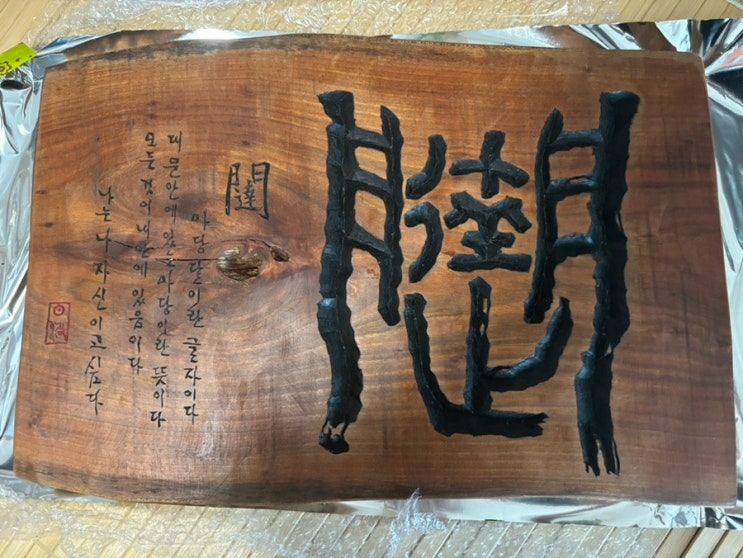 闥
闥
마당달이란 글자이다
대문안에 있는 마당이란 뜻이다
모든것이 내안에 있음이다
나는 나 자신이고 싶다